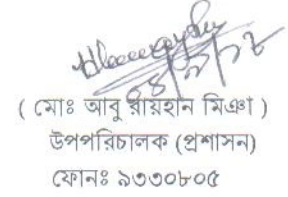 ( মোঃ আবু রায়হান মিঞা )
উপপরিচালক (প্রশাসন)
ফোনঃ ৯৩৩০৮০৫